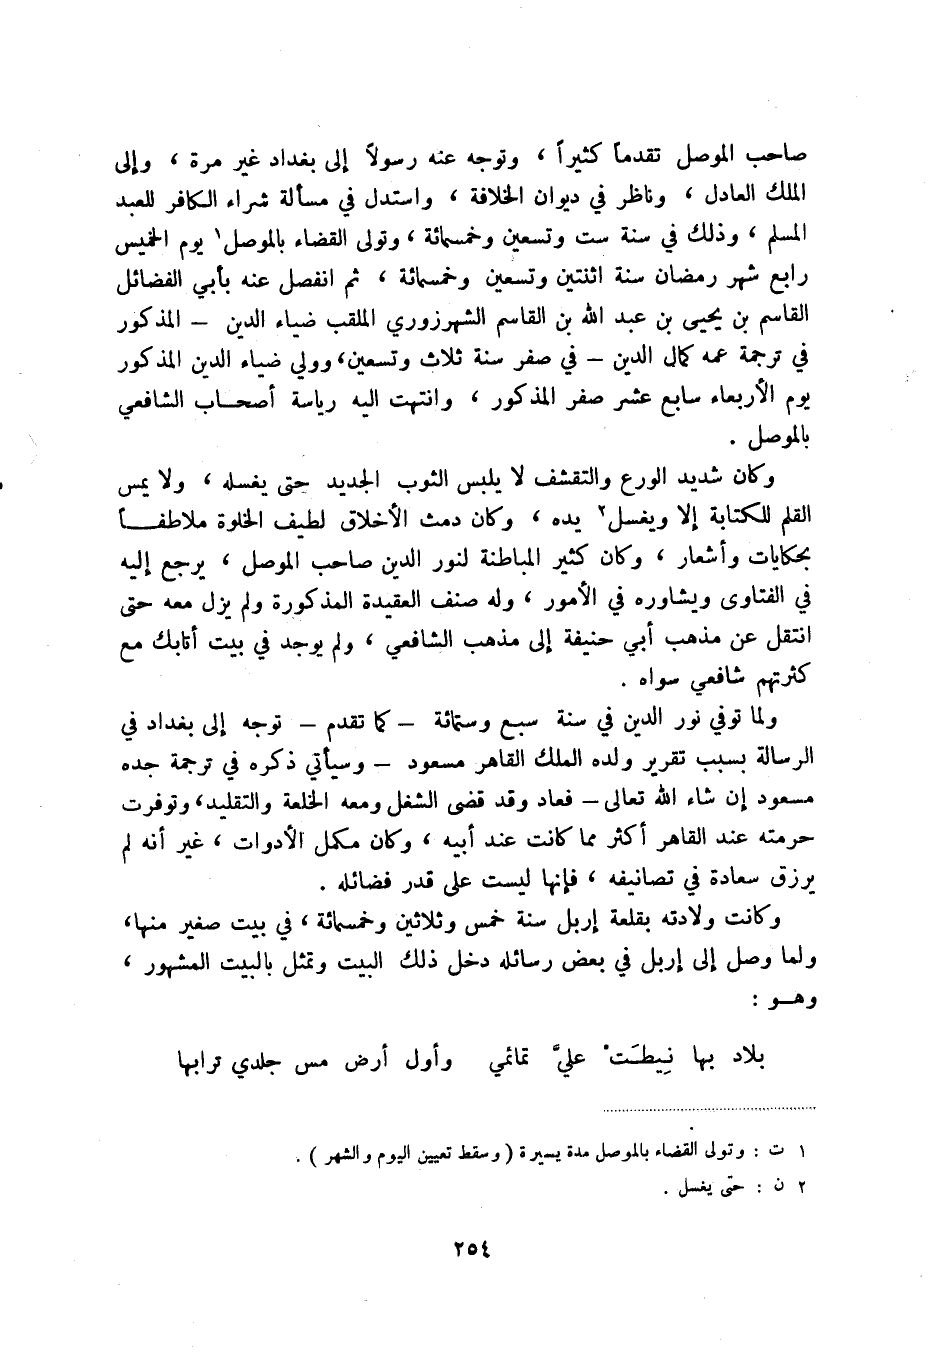 صاحب الموصل تقدماً كثيراً ، وتوجه عنه رسولاً إلى بغداد غير مرة ، وإلى
الملك العادل ، وناظر في ديوان الخلافة ، واستدل في مسألة شراء الكافر للعبد
المسلم ، وذلك في سنة ست وتسعين وخمسمائة ، وتولى القضاء بالموصل١ يوم الخميس
رابع شهر رمضان سنة اثنتين وتسعين وخمسمائة ، ثم انفصل عنه بأبي الفضائل
القاسم بن يحيى بن عبد الله بن القاسم الشهرزوري الملقب ضياء الدين – المذكور
في ترجمة عمه كمال الدين – في صفر سنة ثلاث وتسعين، وولي ضياء الدين المذكور
يوم الأربعاء سابع عشر صفر المذكور ، وانتهت اليه رياسة أصحاب الشافعي
بالموصل .
وكان شديد الورع والتقشف لا يلبس الثوب الجديد حتى يغسله ، ولا يمس
القلم للكتابة إلا ويغسل٢ يده ، وكان دمث الأخلاق لطيف الخلوة ملاطفاً
بحكايات وأشعار ، وكان كثير المباطنة لنور الدين صاحب الموصل ، يرجع إليه
في الفتاوى ويشاوره في الأمور ، وله صنف العقيدة المذكورة ولم يزل معه حتى
انتقل عن مذهب أبي حنيفة إلى مذهب الشافعي ، ولم يوجد في بيت أتابك مع
كثرتهم شافعي سواه .
ولما توفي نور الدين في سنة سبع وستمائة – كما تقدم – توجه إلى بغداد في
الرسالة بسبب تقرير ولده الملك القاهر مسعود – وسيأتي ذكره في ترجمة جده
مسعود إن شاء الله تعالى – فعاد وقد قضى الشغل ومعه الخلعة والتقليد، وتوفرت
حرمته عند القاهر أكثر مما كانت عند أبيه ، وكان مكمل الأدوات ، غير أنه لم
يرزق سعادة في تصانيفه ، فإنها ليست على قدر فضائله .
وكانت ولادته بقلعة إربل سنة خمس وثلاثين وخمسمائة ، في بيت صغير منها،
ولما وصل إلى إربل في بعض رسائله دخل ذلك البيت وتمثل بالبيت المشهور ،
وهو :
بلاد بها نِيطَتْ عليَّ تمائمي وأول أرض مس جلدي ترابها
١ ت : وتولى القضاء بالموصل مدة يسيرة ( وسقط تعيين اليوم والشهر ) .
٢ ن : حتى يغسل .
٢٥٤